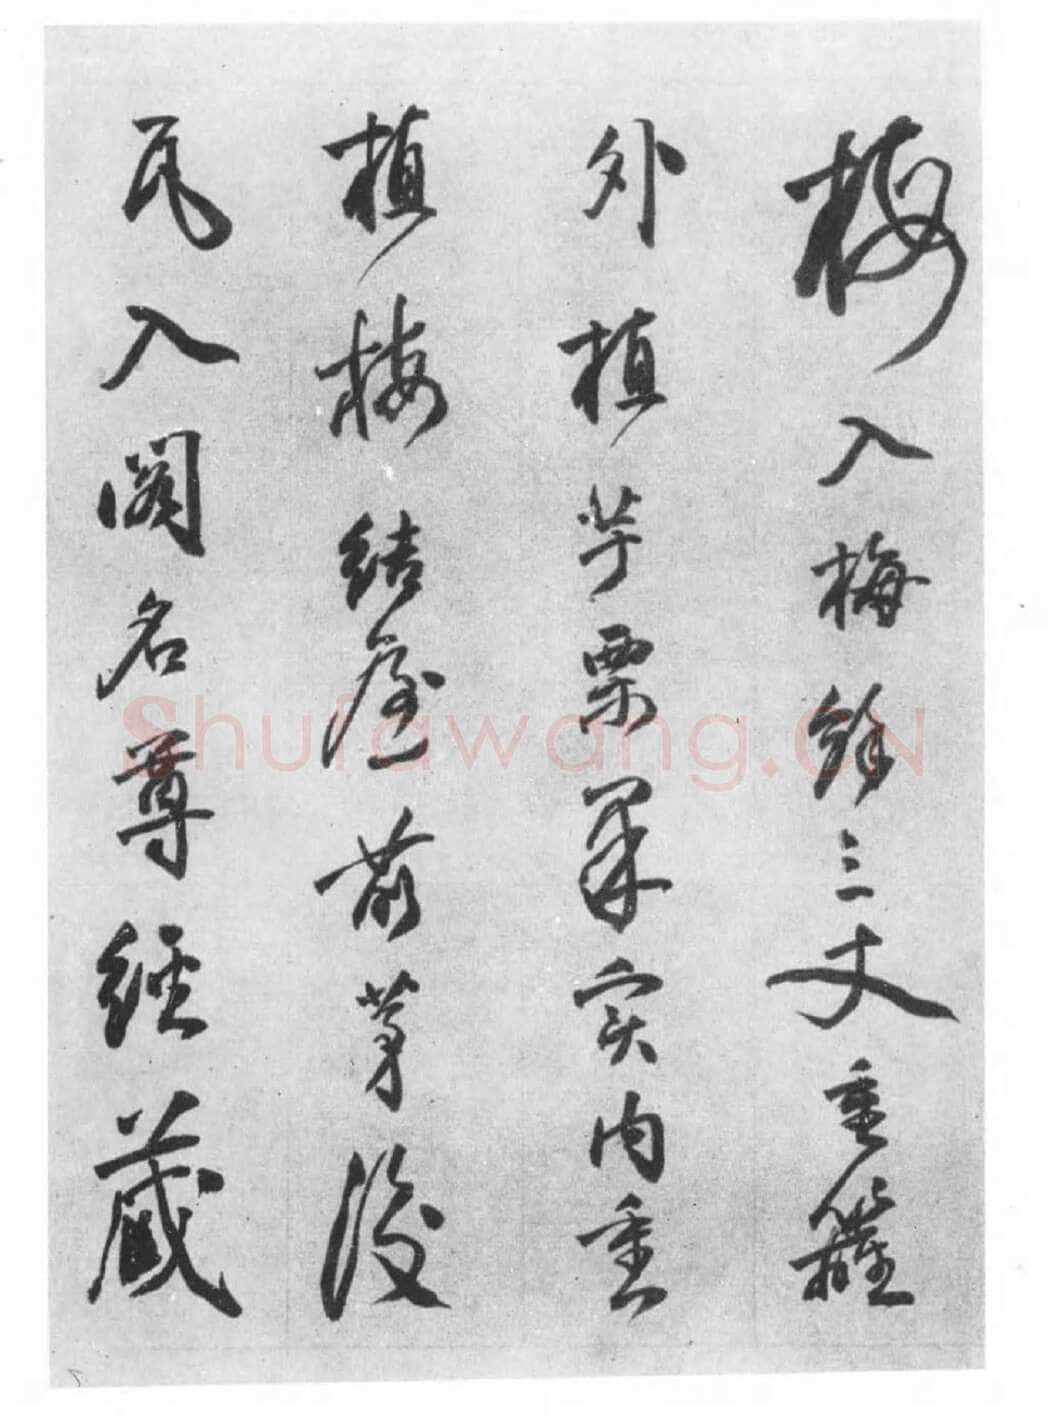 梅入梅餘三丈重籬
外植芋栗果实内重
植梅結屋前茅後
瓦入阁名尊經藏
Shufawang.CN